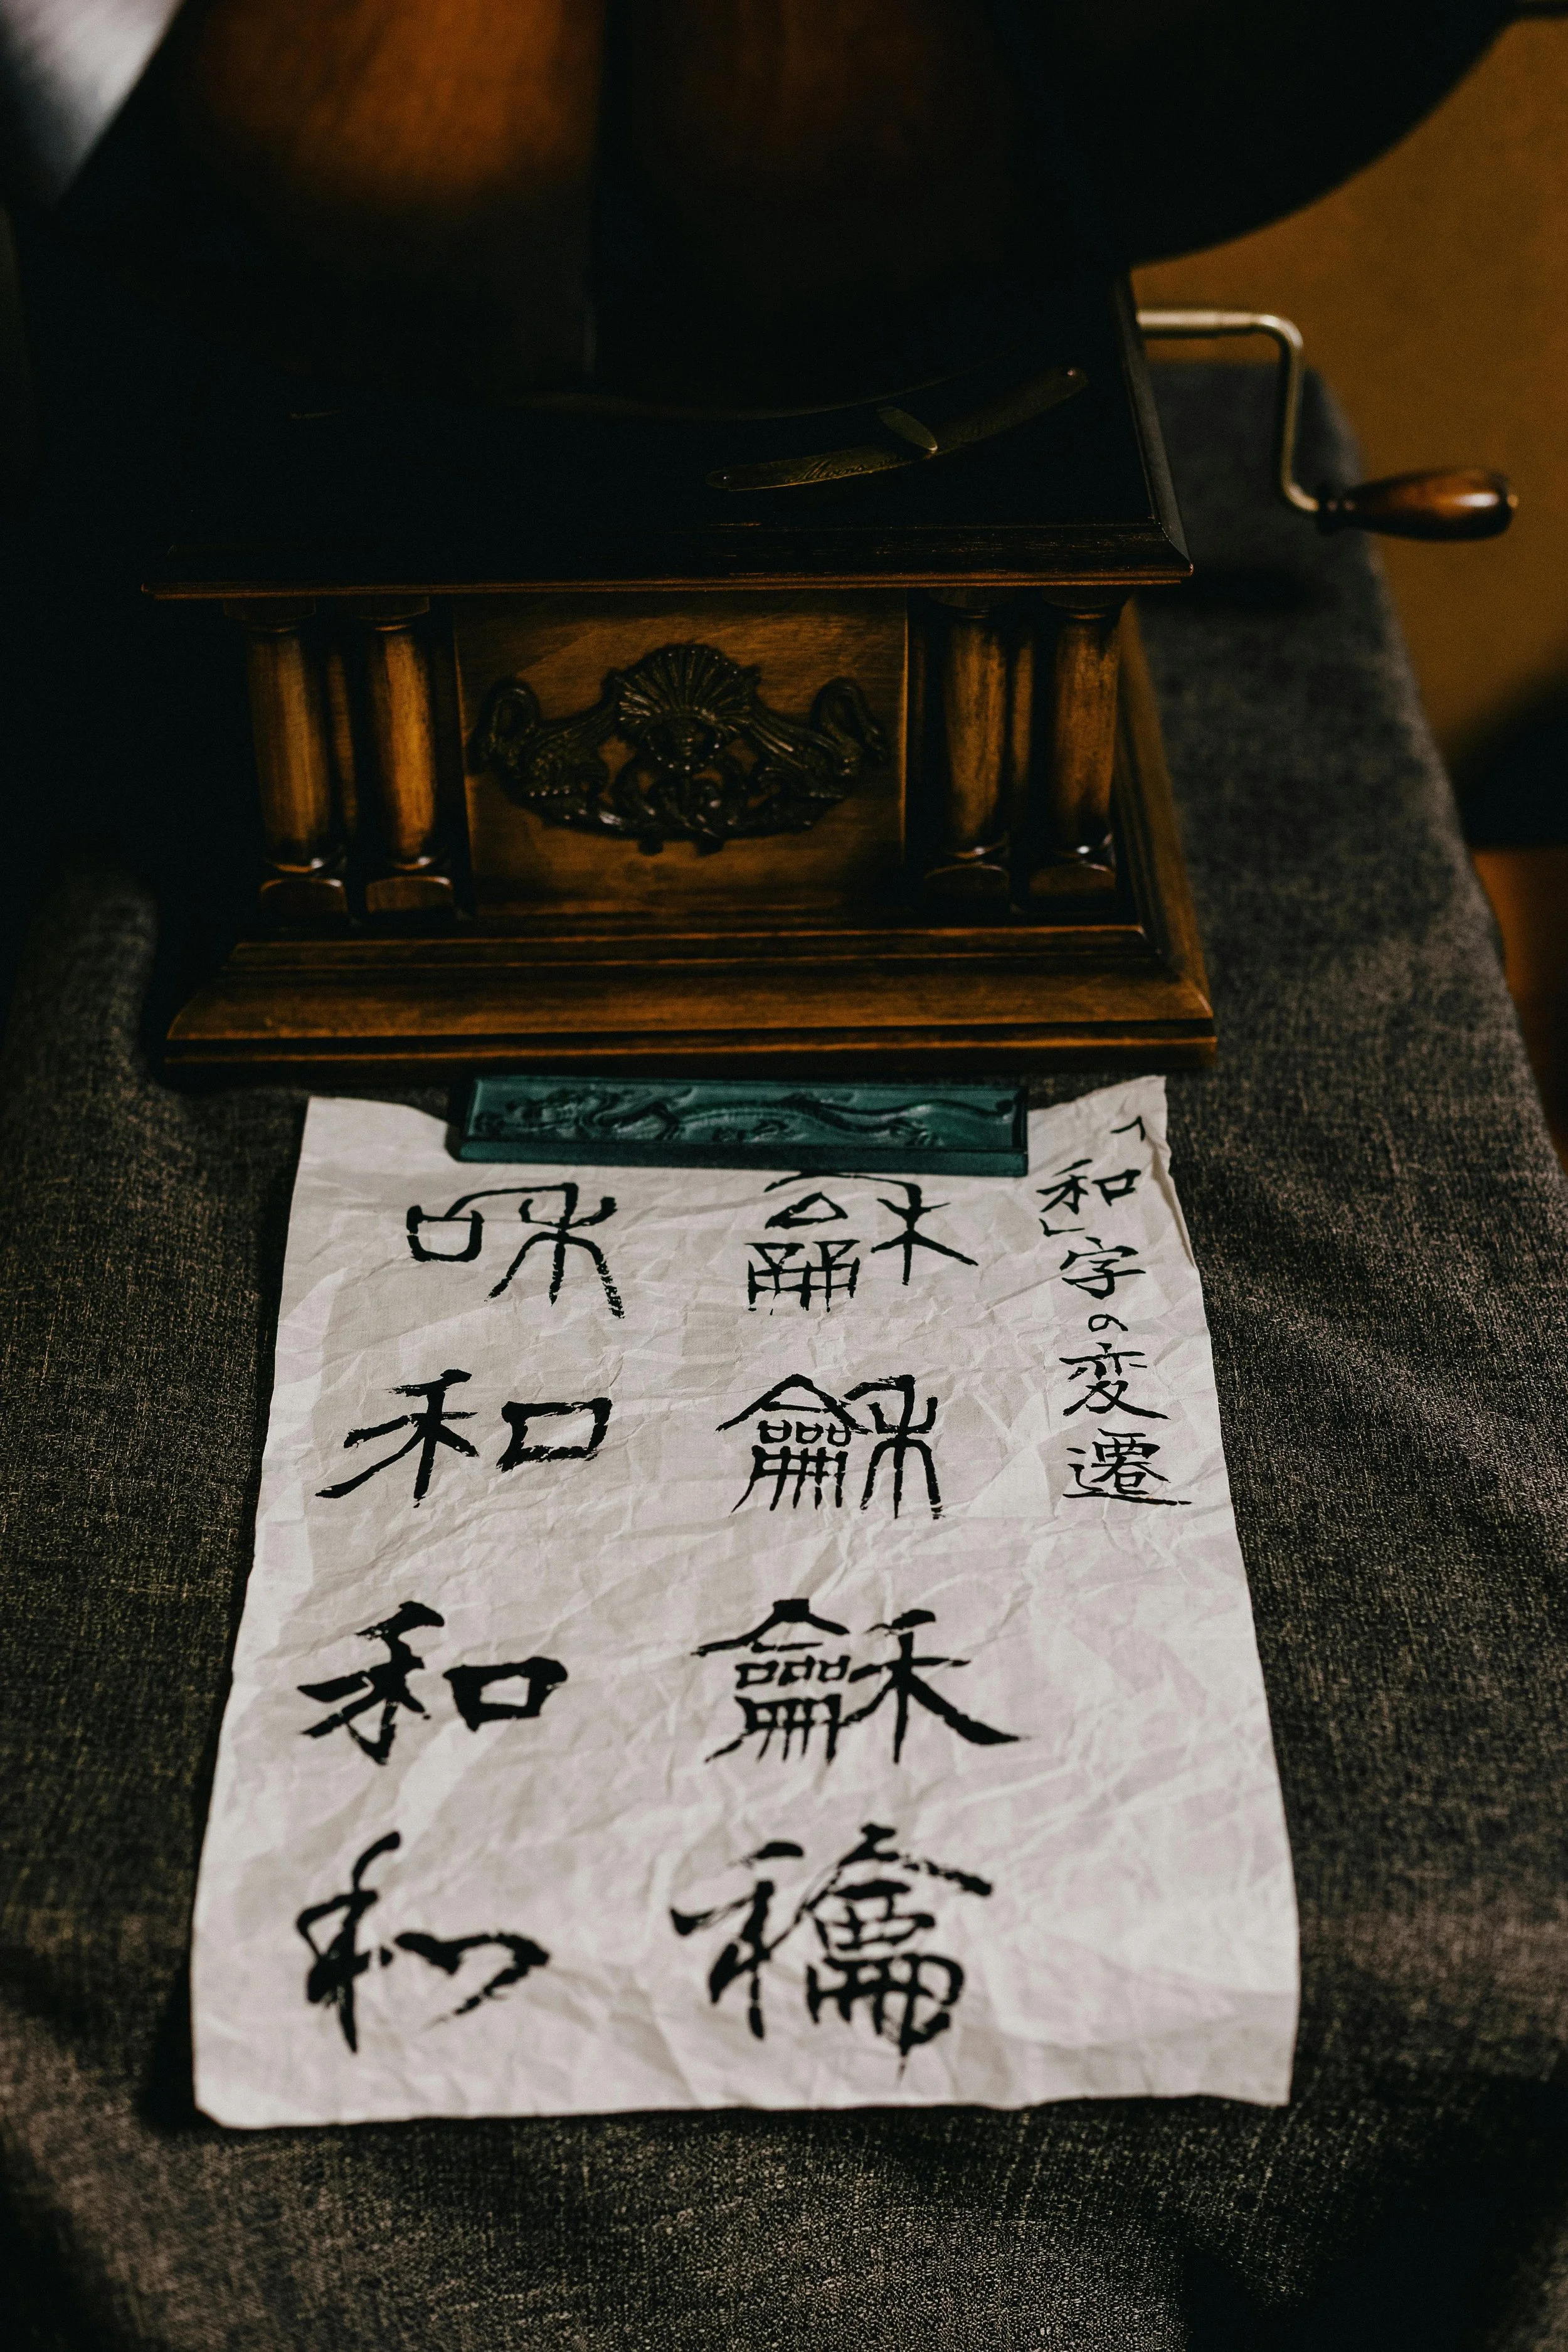 「和」字の変遷
龢
龢
龢
龢
咊
和
和
和